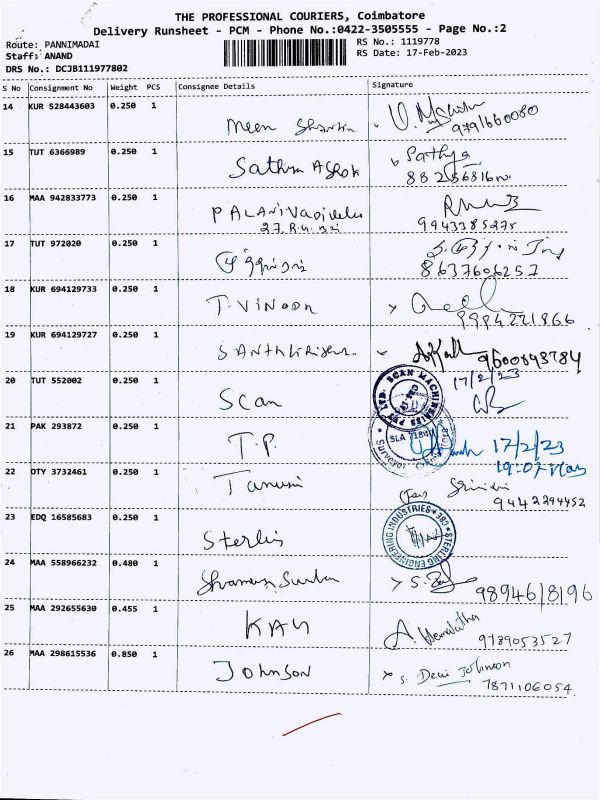 THE PROFESSIONAL COURIERS, Coimbatore
Delivery Runsheet - PCM - Phone No.:0422-3505555 - Page No.:2
Route: PANNIMADAI
RS No.: 1119778
Staff: ANAND
RS Date: 17-Feb-2023
DRS No.: DCJB111977802
S No Consignment No Weight PCS Consignee Details Signature
14 KUR 528443603 0.250 1
9791660080
15 TUT 6366989 0.250 1 Sathya Ashok Sathya
16 MAA 942833773 0.250 1 PALANIVadivelu
9943385275
17 TUT 972020 0.250 1
8637606257
18 KUR 694129733 0.250 1 T. VINOTH
9994221866
19 KUR 694129727 0.250 1
9600848784
20 TUT 552002 0.250 1 Scan SCAN MACHINERIES PVT LTD. 17/2/23
21 PAK 293872 0.250 1 T.P. 17/2/23
22 OTY 3732461 0.250 1
9442294452
23 EDQ 16585683 0.250 1 STERLING ENGINEERING INDUSTRIES
24 MAA 558966232 0.480 1
9894618196
25 MAA 292655630 0.455 1 A. Hemalatha
9789053527
26 MAA 298615536 0.850 1 Johnson S. Devi Johnson
7871106054